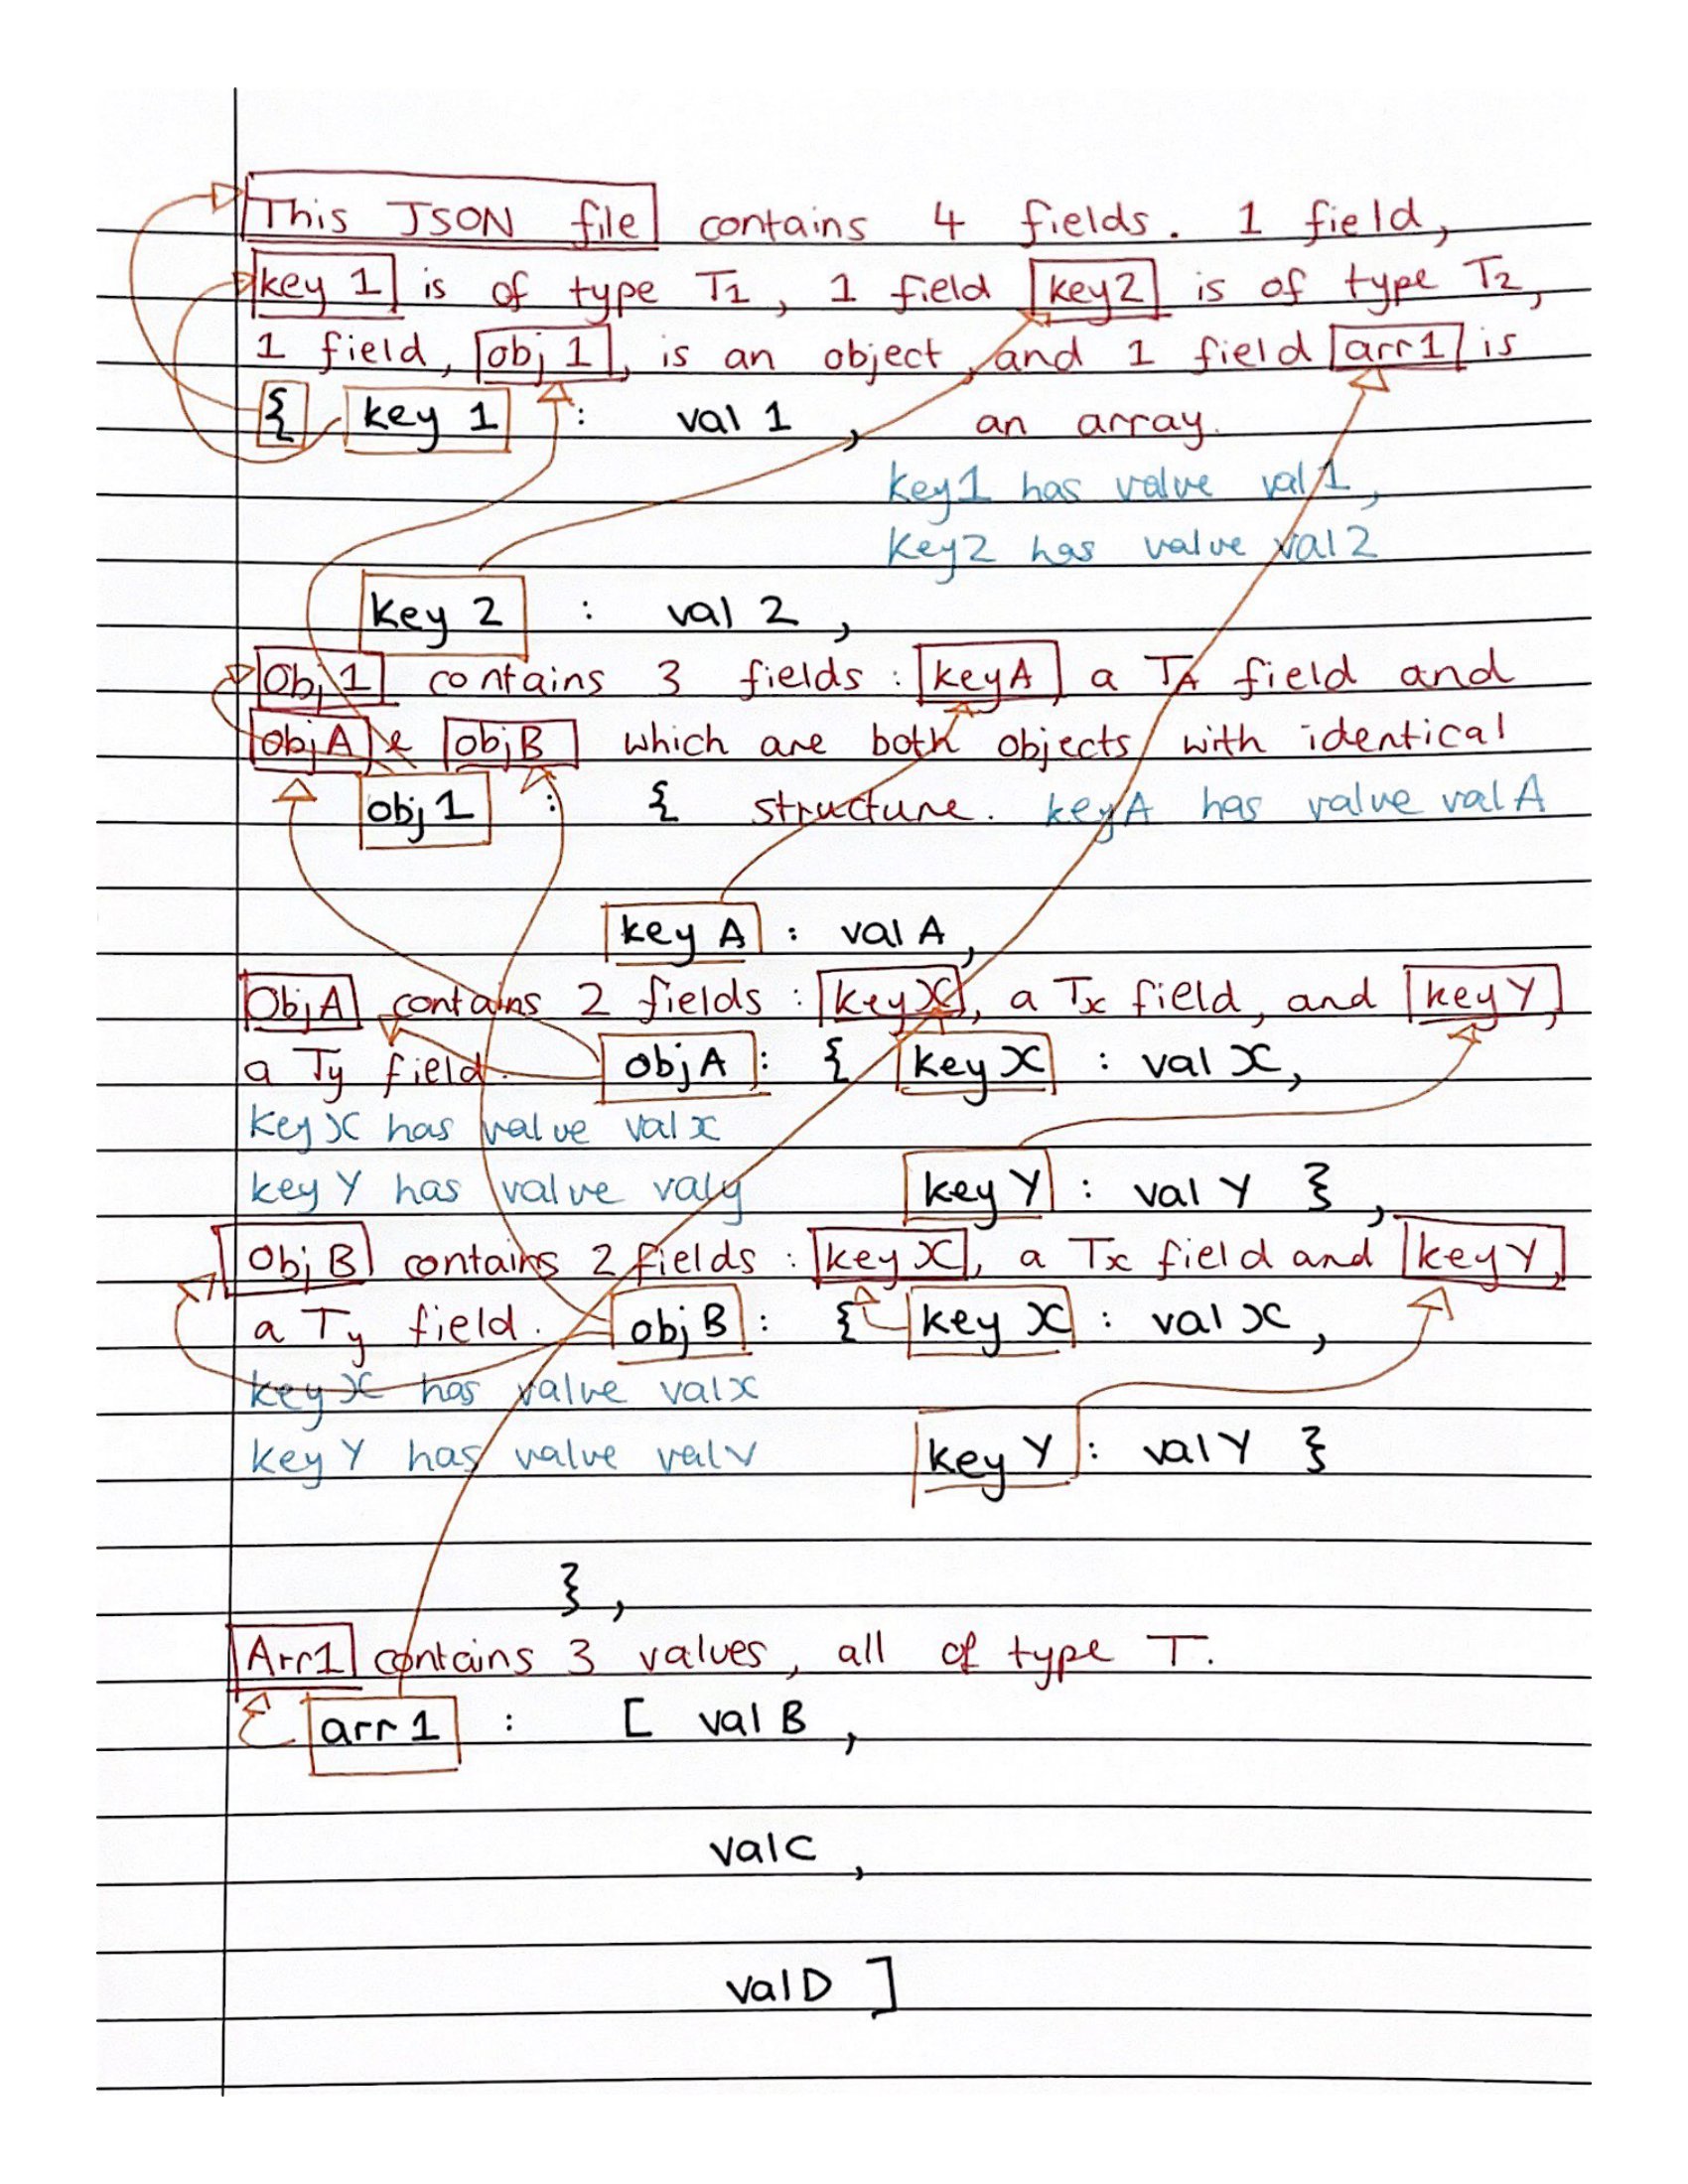 This JSON file contains 4 fields. 1 field,
key 1 is of type T1, 1 field key2 is of type T2,
1 field, obj 1, is an object, and 1 field arr1 is
{ key 1 : val 1 , an array.
key1 has value val1,
key2 has value val2
key 2 : val 2 ,
Obj1 contains 3 fields : keyA a TA field and
objA & objB which are both objects with identical
obj1 : { structure. keyA has value valA
key A : val A ,
ObjA contains 2 fields : keyX, a Tx field, and keyY,
a Ty field. objA : { key X : val X,
key X has value valx
key Y has value valy
key Y : val Y } ,
Obj B contains 2 fields : key X, a Tx field and key Y,
a Ty field. obj B : { key X : val X ,
key X has value valx
key Y has value valv
key Y : val Y }
} ,
Arr1 contains 3 values, all of type T.
arr 1 : [ val B ,
valC ,
valD ]